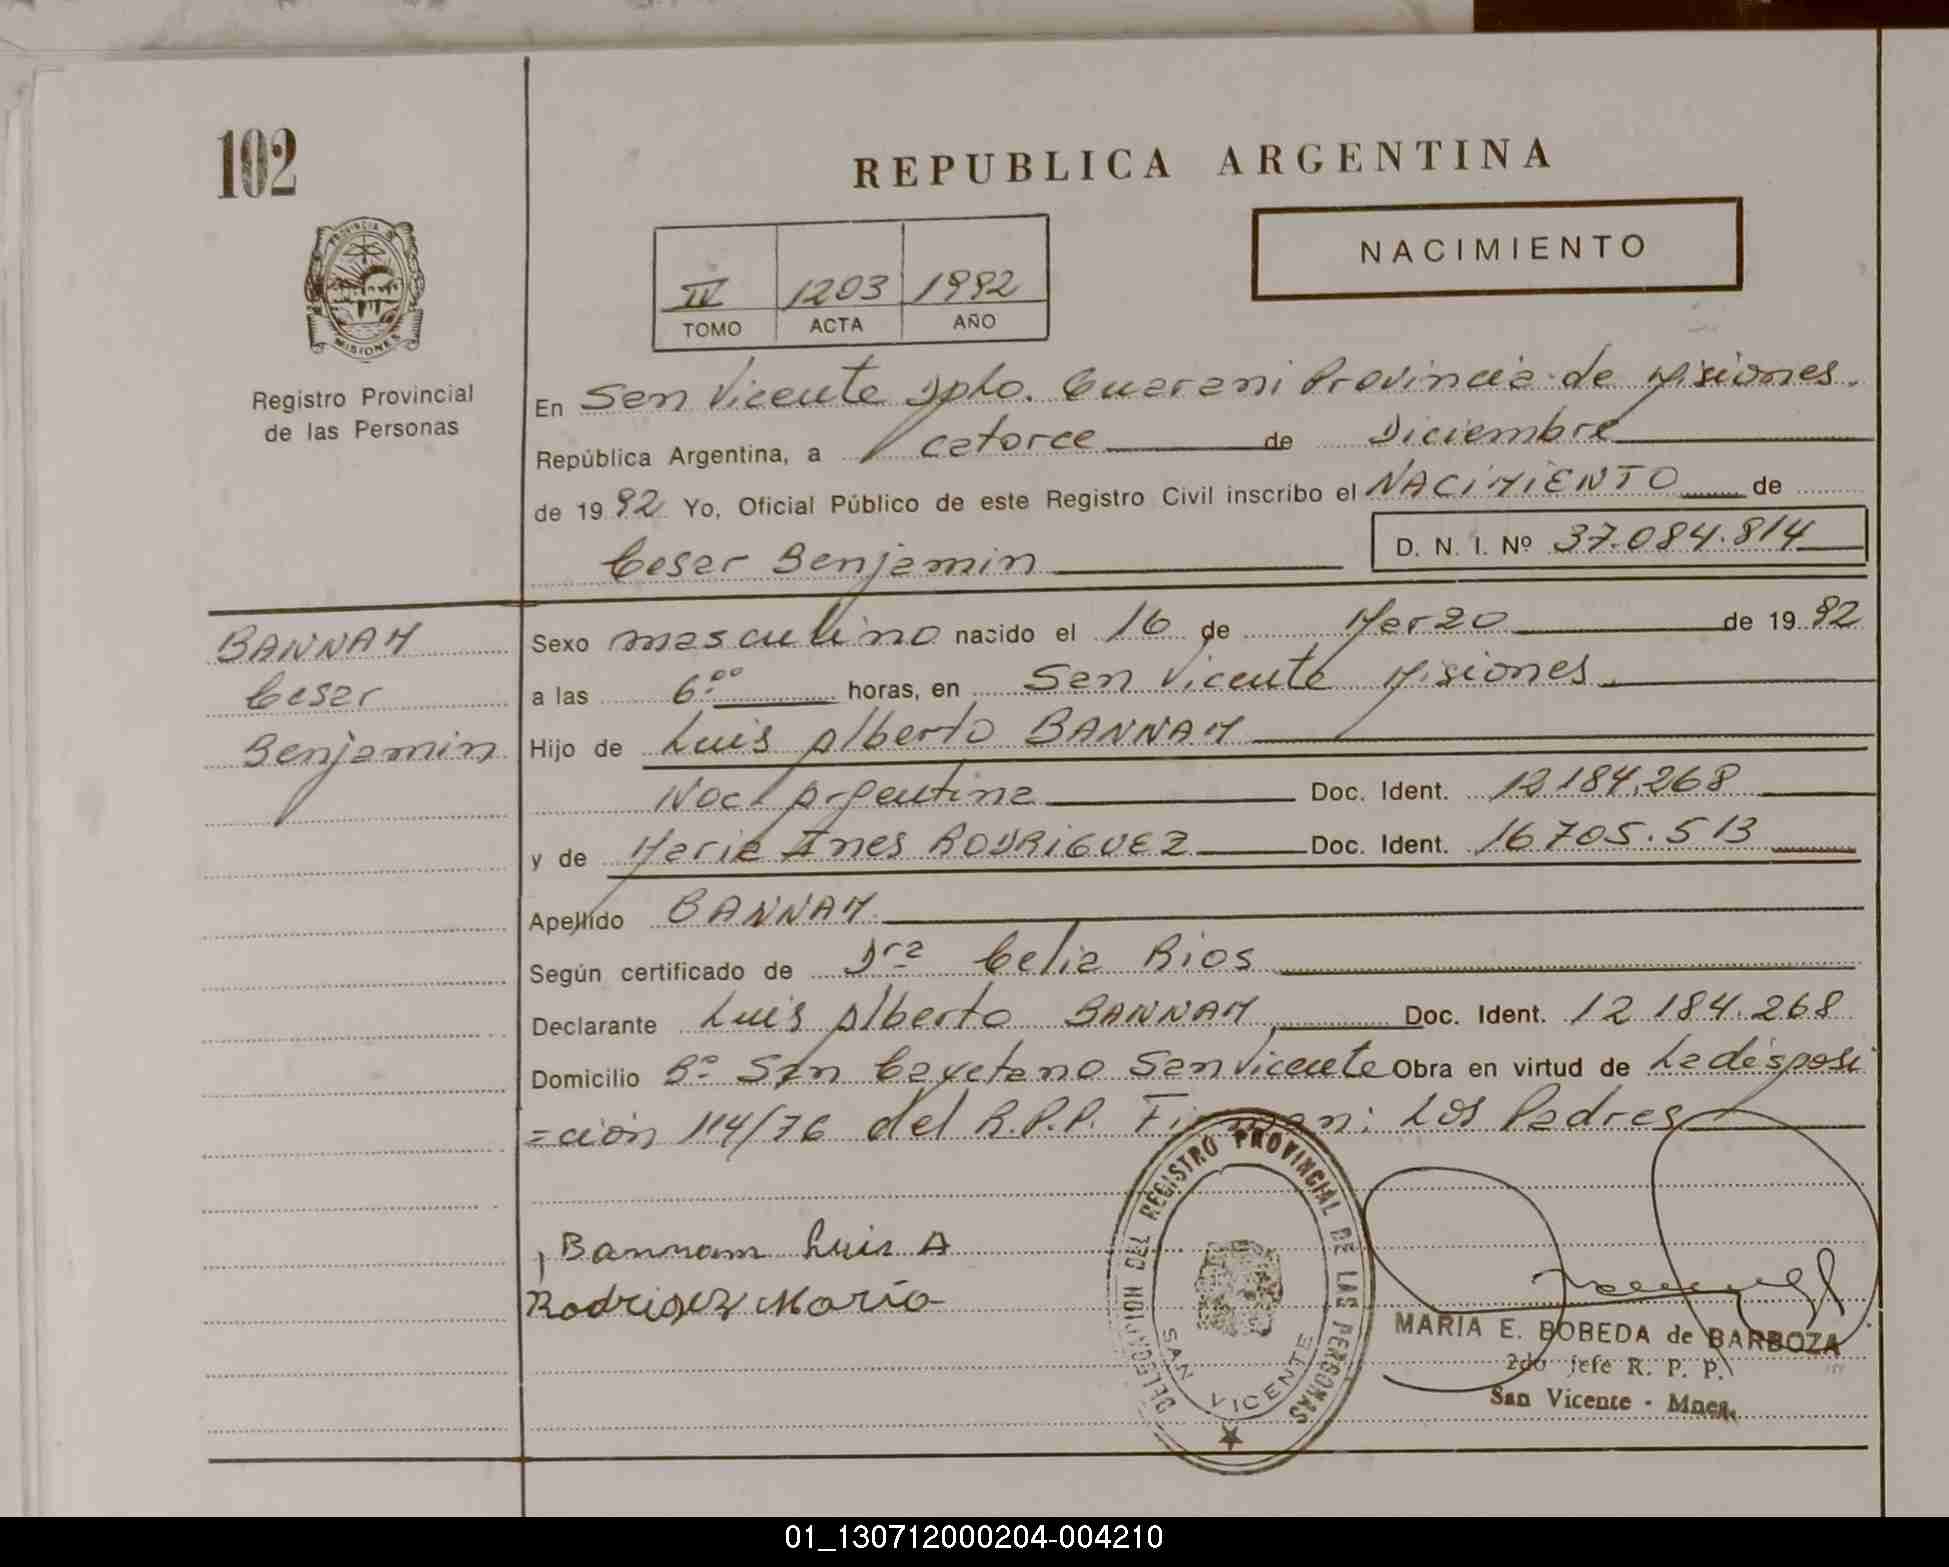 102
REPUBLICA ARGENTINA
PROVINCIA DE
MISIONES
Registro Provincial
de las Personas
IV 1203 1992
TOMO ACTA AÑO
NACIMIENTO
En San Vicente Dpto. Guarani Provincia de Misiones.
República Argentina, a catorce de Diciembre
de 1992 Yo, Oficial Público de este Registro Civil inscribo el NACIMIENTO de
Cesar Benjamin D. N. I. Nº 37.084.814
BANNAM
Cesar
Benjamin
Sexo masculino nacido el 16 de Marzo de 1992
a las 6:00 horas, en San Vicente Misiones.
Hijo de Luis Alberto BANNAM
Nac. Argentina Doc. Ident. 12.184.268
y de Maria Ines RODRIGUEZ Doc. Ident. 16.705.513
Apellido BANNAM.
Según certificado de Dra Celia Rios
Declarante Luis Alberto BANNAM Doc. Ident. 12.184.268
Domicilio Bº San Cayetano San Vicente Obra en virtud de La disposi
=ción 114/76 del R.P.P. Firman: Los Padres
Bannam Luis A
Rodriguez María
DELEGACION DEL REGISTRO PROVINCIAL DE LAS PERSONAS
SAN VICENTE
MARIA E. BOBEDA de BARBOZA
2do jefe R. P. P.
San Vicente - Mnes.
01_130712000204-004210